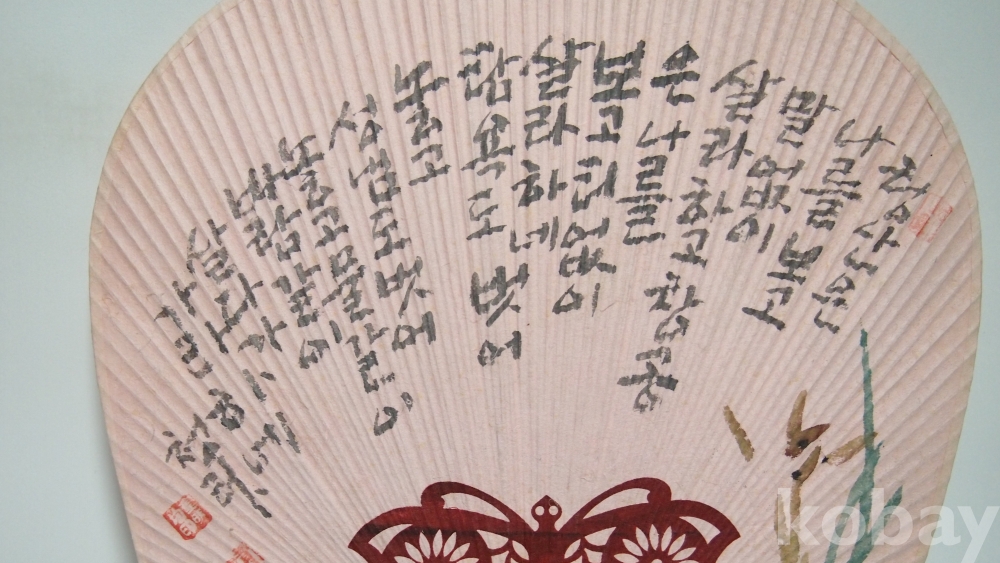 청산은
나를 보고
말없이
살라하고 창공
은 나를
보고 티없이
살라하네
탐욕도 벗어
놓고
성냄도 벗어
놓고 물같이
바람같이
살다가
kobay